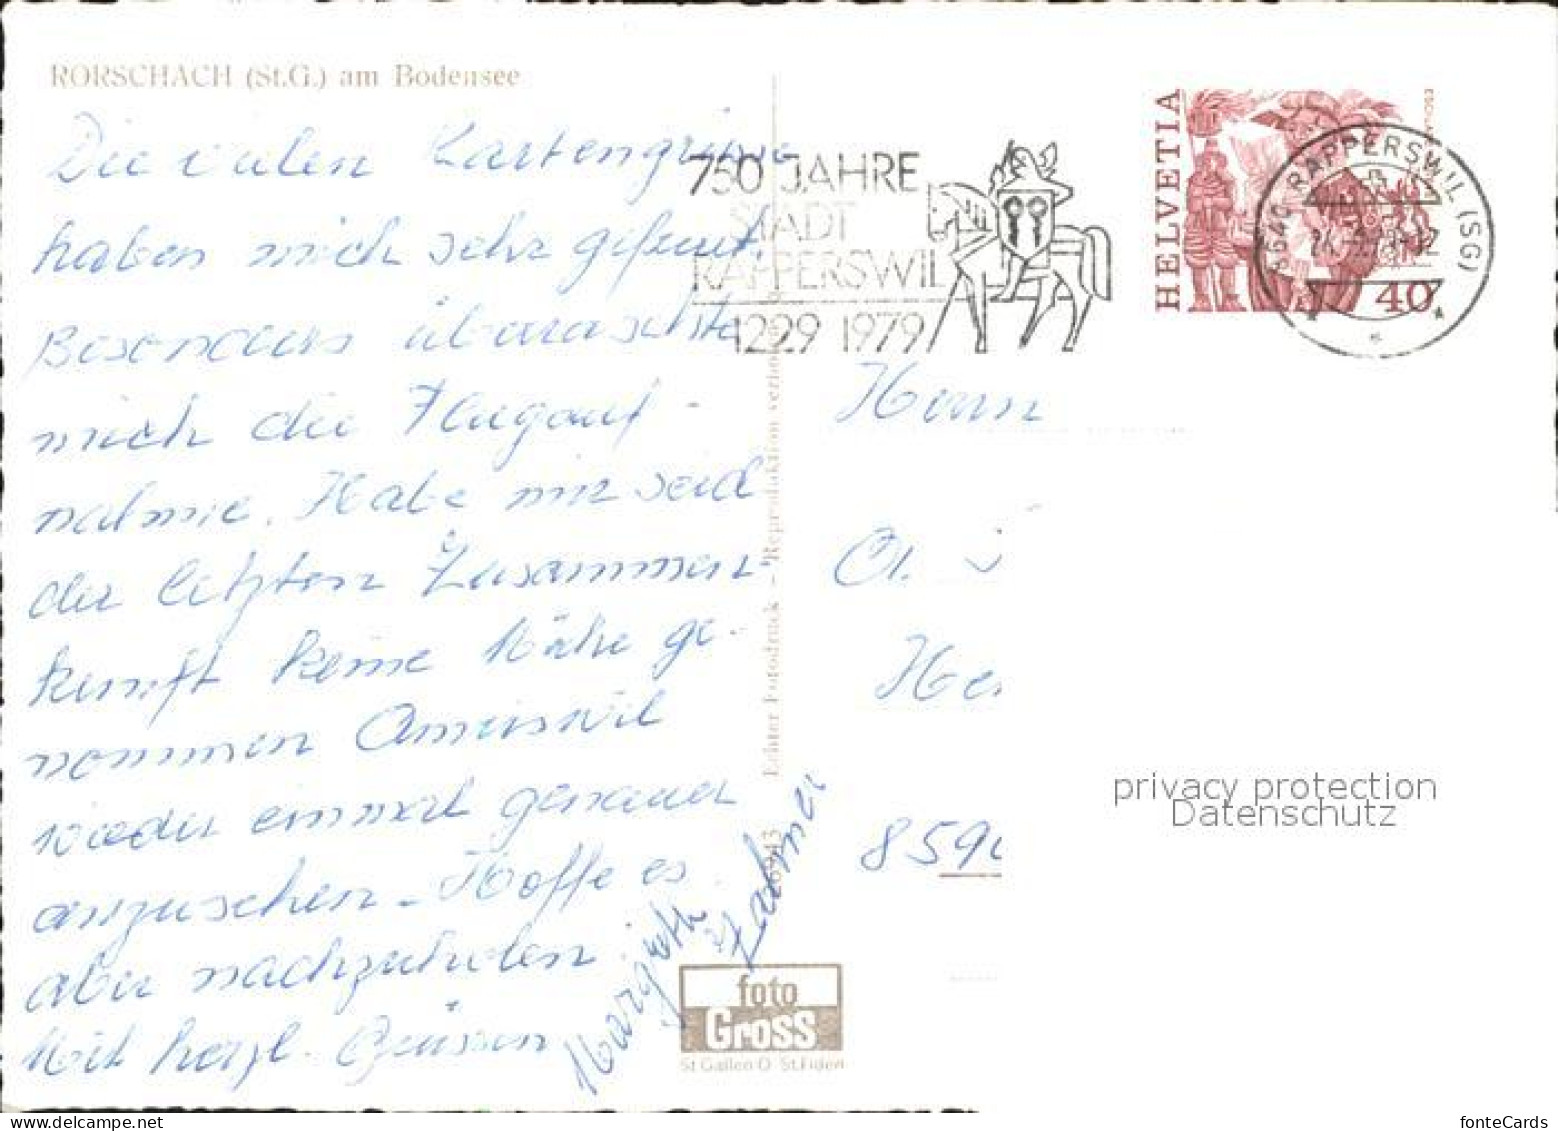 RORSCHACH (St.G.) am Bodensee
Die vielen Kartengrüsse
haben mich sehr gefreut.
Besonders überraschte
mich die Flugauf-
nahme. Habe mir seid
der letzten Zusammen-
kunft keine Mühe ge-
nommen Amriswil
wieder einmal genauer
anzusehen. Hoffe es
aber nachzuholen.
Mit herzl. Grüssen
Margrith Zahner
750 JAHRE
STADT
RAPPERSWIL
1229 1979
HELVETIA
40
8640 RAPPERSWIL (SG)
Echter Fotodruck - Reproduktion verboten
foto
Gross
St Gallen O - St.Fiden
Herrn
He
859
privacy protection
Datenschutz
fonteCards